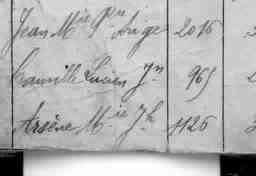 Jean Mie Pre Ange 2016
Camille Lucien Jh 965
Arsène Mie Jh 1126